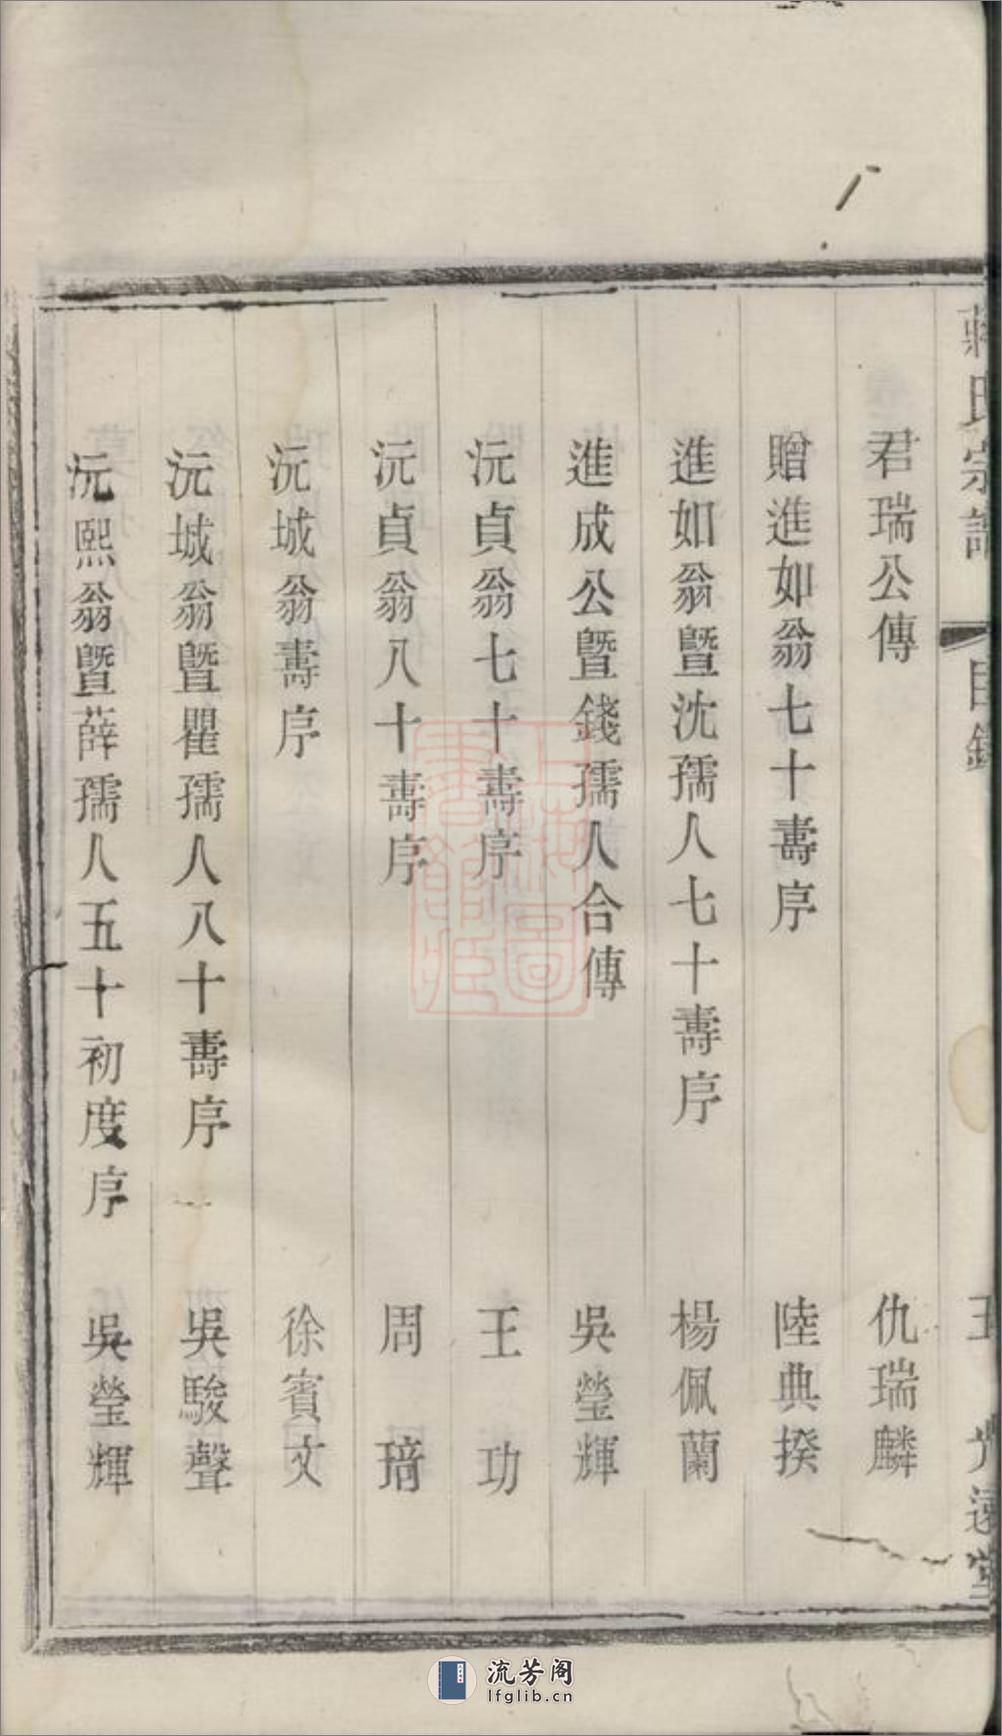 蔣氏宗譜 目錄 五 光遠堂
君瑞公傳 仇瑞麟
贈進如翁七十壽序 陸典揆
進如翁暨沈孺人七十壽序 楊佩蘭
進成公暨錢孺人合傳 吳瑩輝
沅貞翁七十壽序 王功
沅貞翁八十壽序 周琣
沅城翁壽序 徐賓文
沅城翁暨瞿孺人八十壽序 吳駿聲
沅熙翁暨薛孺人五十初度序 吳瑩輝
上海圖書館藏
流芳阁
lfglib.cn